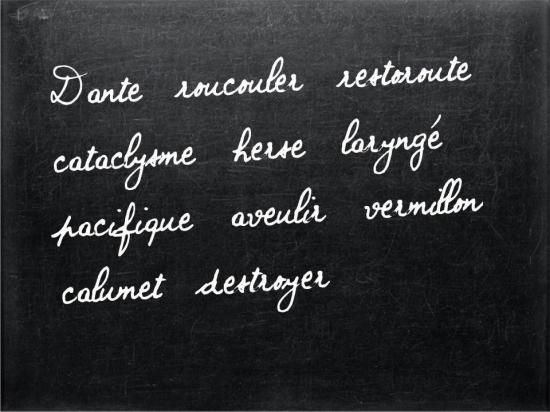 Dante roucouler restoroute
cataclysme herse laryngé
pacifique aveulir vermillon
calumet destroyer